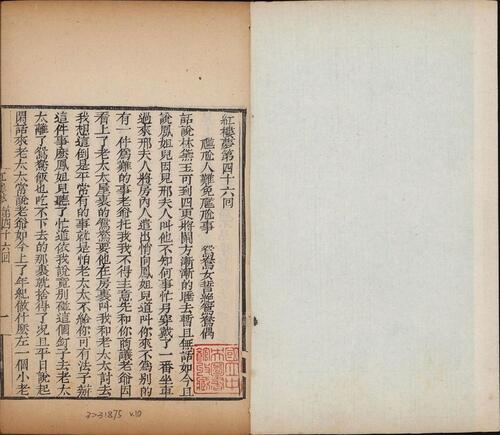 紅樓夢第四十六回
尷尬人難免尷尬事 鴛鴦女誓絕鴛鴦偶
話說林黛玉可到四更將闌方漸漸的睡去暫且無話如今且
說鳳姐兒因見邢夫人叫他不知何事忙另穿戴了一番坐車
過來邢夫人將房內人遣出悄向鳳姐兒道叫你來不為別的
有一件為難的事老爺托我我不得主意先和你商議老爺因
看上了老太太屋裏的鴛鴦要他在房裏叫我和老太太討去
我想這倒是平常有的事就是怕老太太不給你可有法子辦
這件事麼鳳姐兒聽了忙道依我說竟別碰這個釘子去老太
太離了鴛鴦飯也吃不下去的那裏就捨得了況且平日說起
閒話來老太太常說老爺如今上了年紀做什麼左一個小老
紅樓夢 第四十六回 一
2731875 v.10